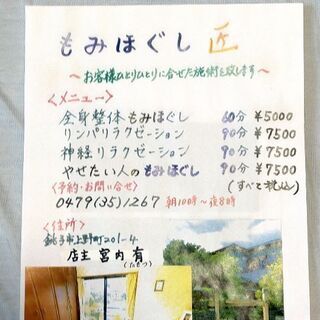 もみほぐし 匠
～お客様ひとりひとりに合せた施術を致します～
＜メニュー＞
全身整体もみほぐし 60分 ¥5000
リンパリラクゼーション 90分 ¥7500
神経リラクゼーション 90分 ¥7500
やせたい人のもみほぐし 90分 ¥7500
＜予約・お問い合せ＞ (すべて税込)
0479(35)1267 朝10時～夜8時
＜住所＞
銚子市上野町201-4
店主 宮内 有
(たもつ)